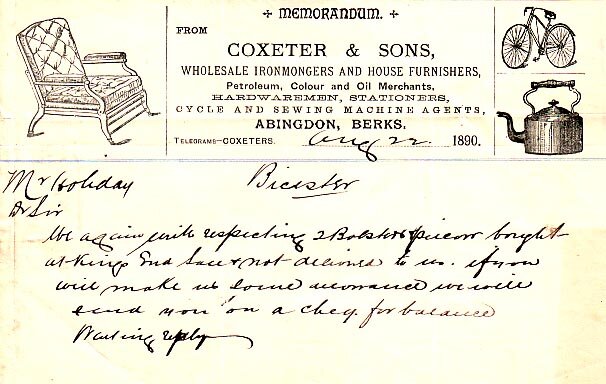 MEMORANDUM.
FROM
COXETER & SONS,
WHOLESALE IRONMONGERS AND HOUSE FURNISHERS,
Petroleum, Colour and Oil Merchants,
HARDWAREMEN, STATIONERS,
CYCLE AND SEWING MACHINE AGENTS,
ABINGDON, BERKS.
TELEGRAMS—COXETERS. Aug 22 1890.
Mr Holiday Bicester
Dr Sir
We again write respecting 2 Bolsters & pillow bought
at Kings End Sale & not delivered to us. if you
will make us some allowance we will
send you on a cheq. for balance
Waiting reply